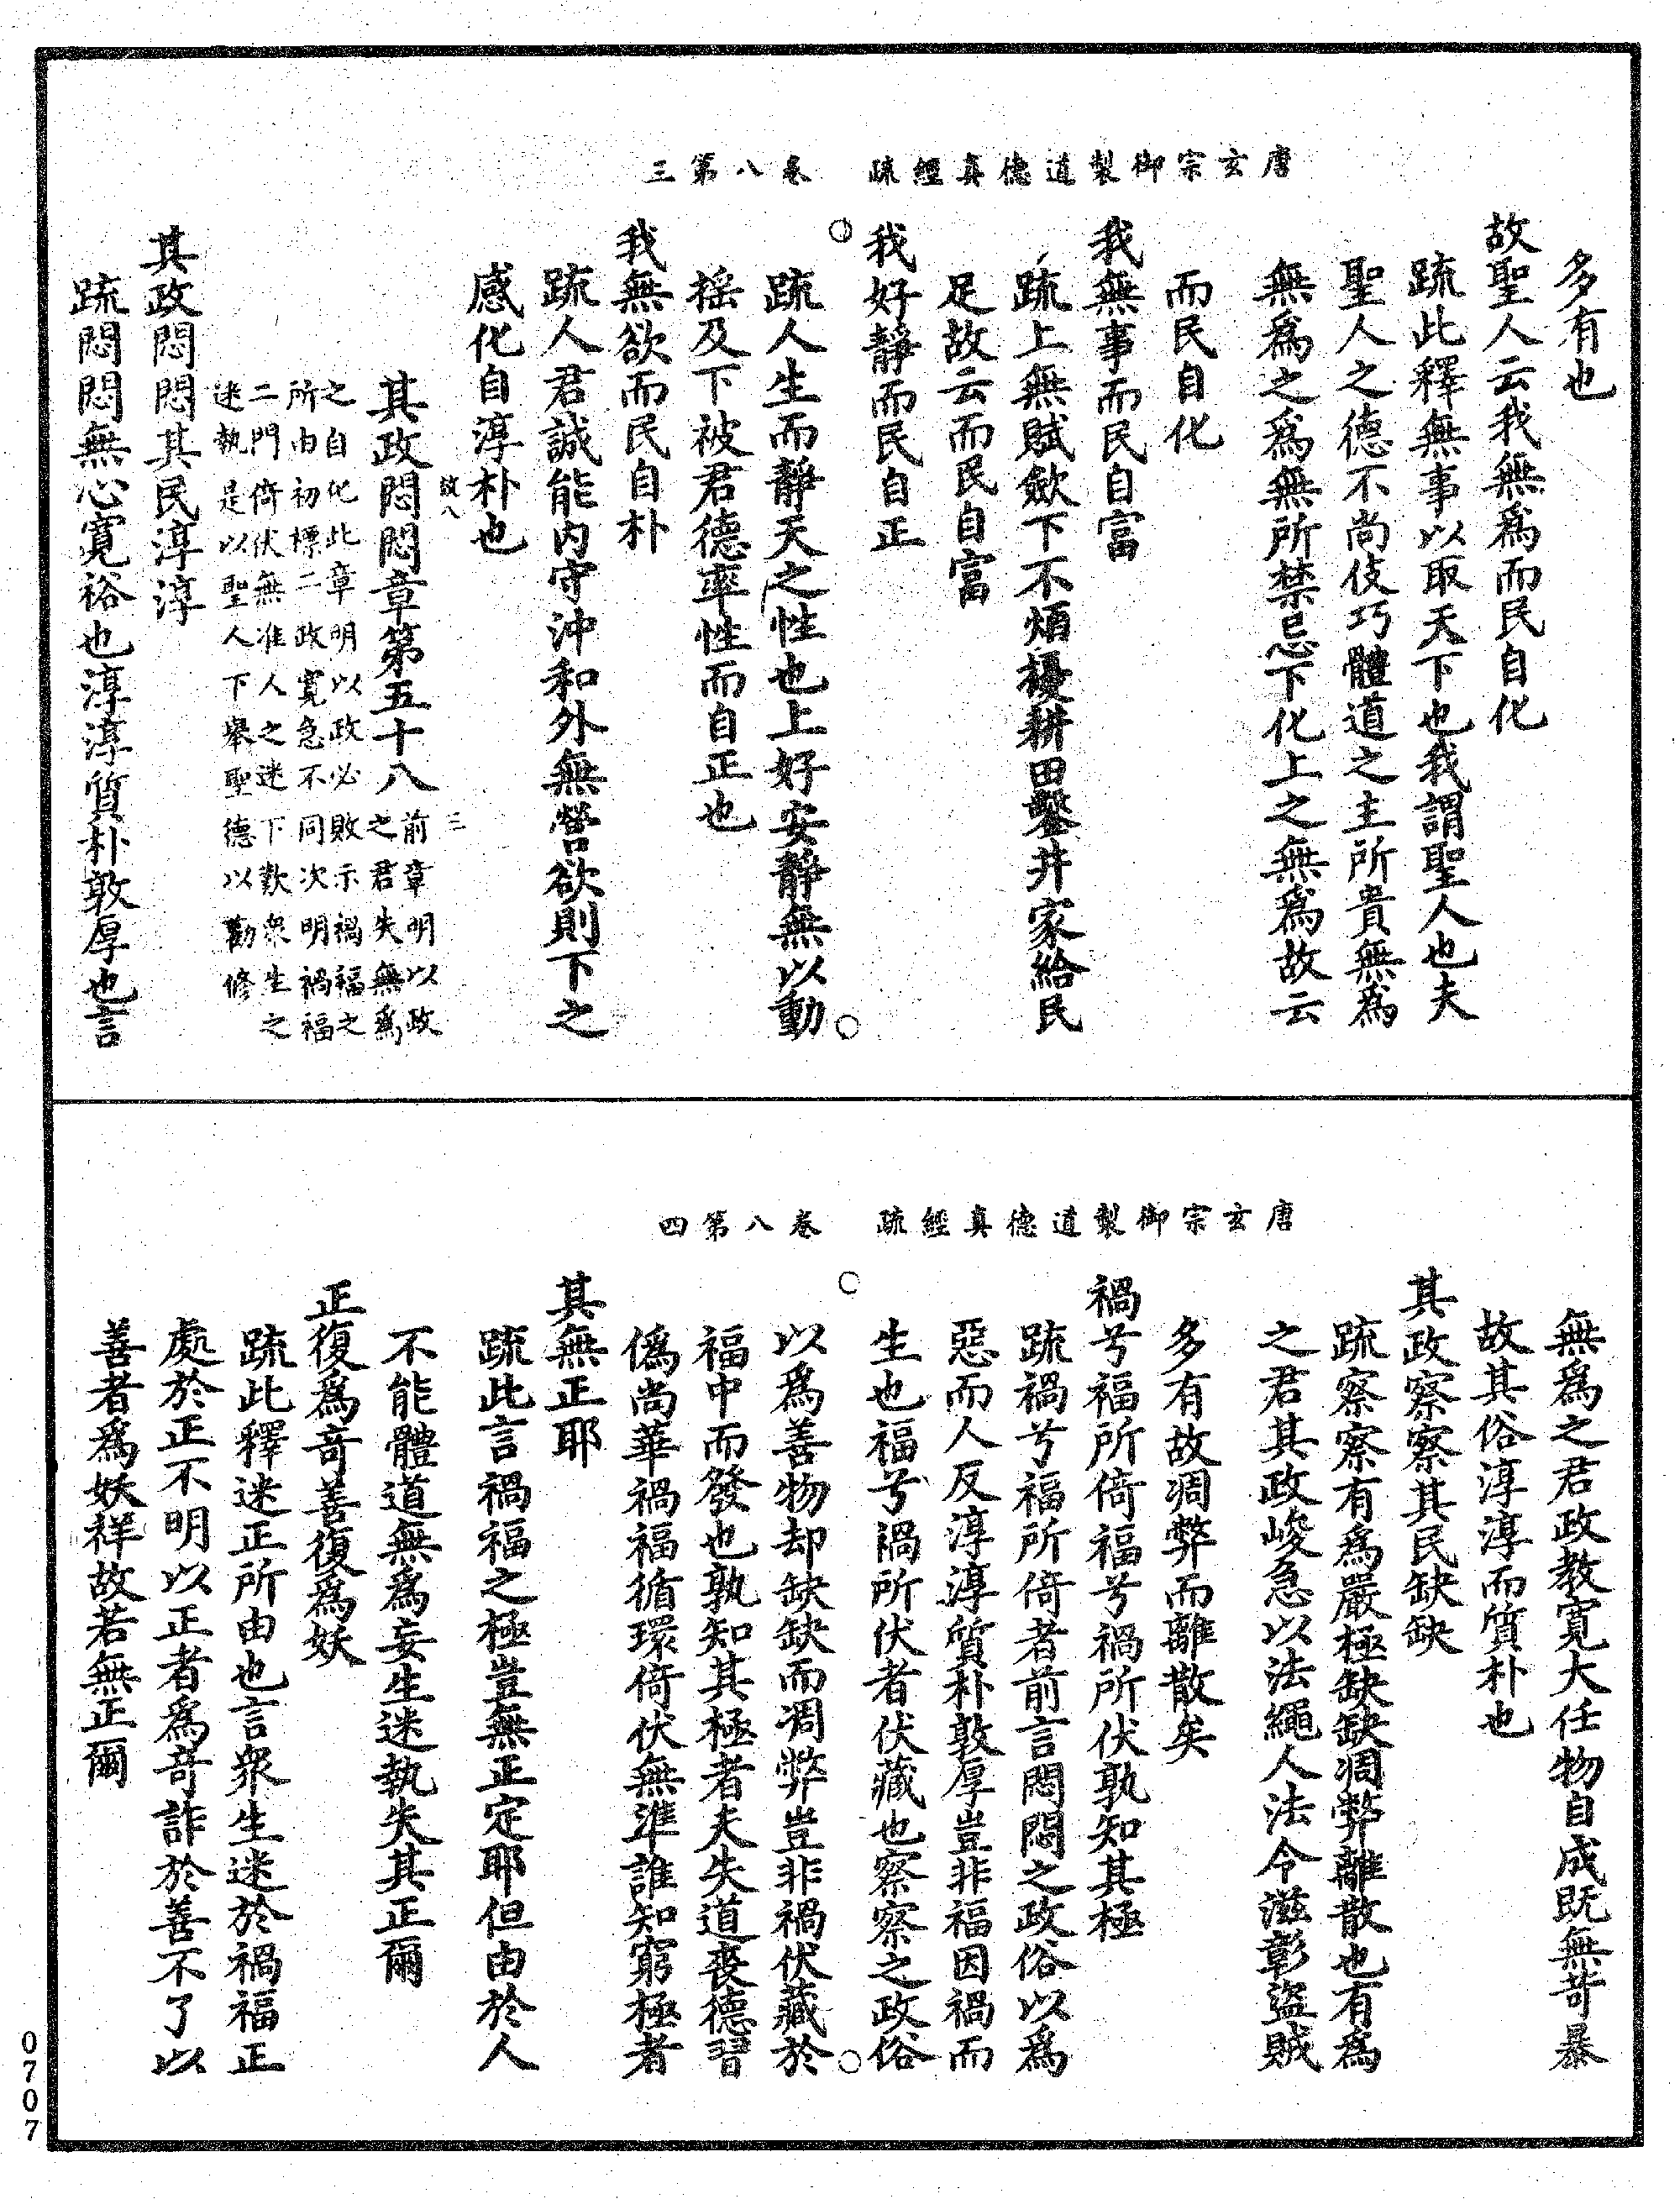 唐玄宗御製道德真經疏　卷八第三
多有也
故聖人云我無爲而民自化
疏此釋無事以取天下也我謂聖人也夫
聖人之德不尚伎巧體道之主所貴無爲
無爲之爲無所禁忌下化上之無爲故云
而民自化
我無事而民自富
疏上無賦斂下不煩擾耕田鑿井家給民
足故云而民自富
我好靜而民自正
疏人生而靜天之性也上好安靜無以動
搖及下被君德率性而自正也
我無欲而民自朴
疏人君誠能内守沖和外無營欲則下之
感化自淳朴也
故八　三
其政悶悶章第五十八前章明以政
之君失無爲
之自化此章明以政必敗示禍福之
所由初標二政寬急不同次明禍福
二門倚伏無准人之迷下歎衆生之
迷執是以聖人下舉聖德以勸修
其政悶悶其民淳淳
疏悶悶無心寬裕也淳淳質朴敦厚也言
唐玄宗御製道德真經疏　卷八第四
無爲之君政教寬大任物自成既無苛暴
故其俗淳淳而質朴也
其政察察其民缺缺
疏察察有爲嚴極缺缺凋弊離散也有爲
之君其政峻急以法繩人法令滋彰盜賊
多有故凋弊而離散矣
禍兮福所倚福兮禍所伏孰知其極
疏禍兮福所倚者前言悶悶之政俗以爲
惡而人反淳淳質朴敦厚豈非福因禍而
生也福兮禍所伏者伏藏也察察之政俗
以爲善物却缺缺而凋弊豈非禍伏藏於
福中而發也孰知其極者夫失道喪德習
僞尚華禍福循環倚伏無準誰知窮極者
其無正耶
疏此言禍福之極豈無正定耶但由於人
不能體道無爲妄生迷執失其正爾
正復爲奇善復爲妖
疏此釋迷正所由也言衆生迷於禍福正
處於正不明以正者爲奇詐於善不了以
善者爲妖祥故若無正爾
0707